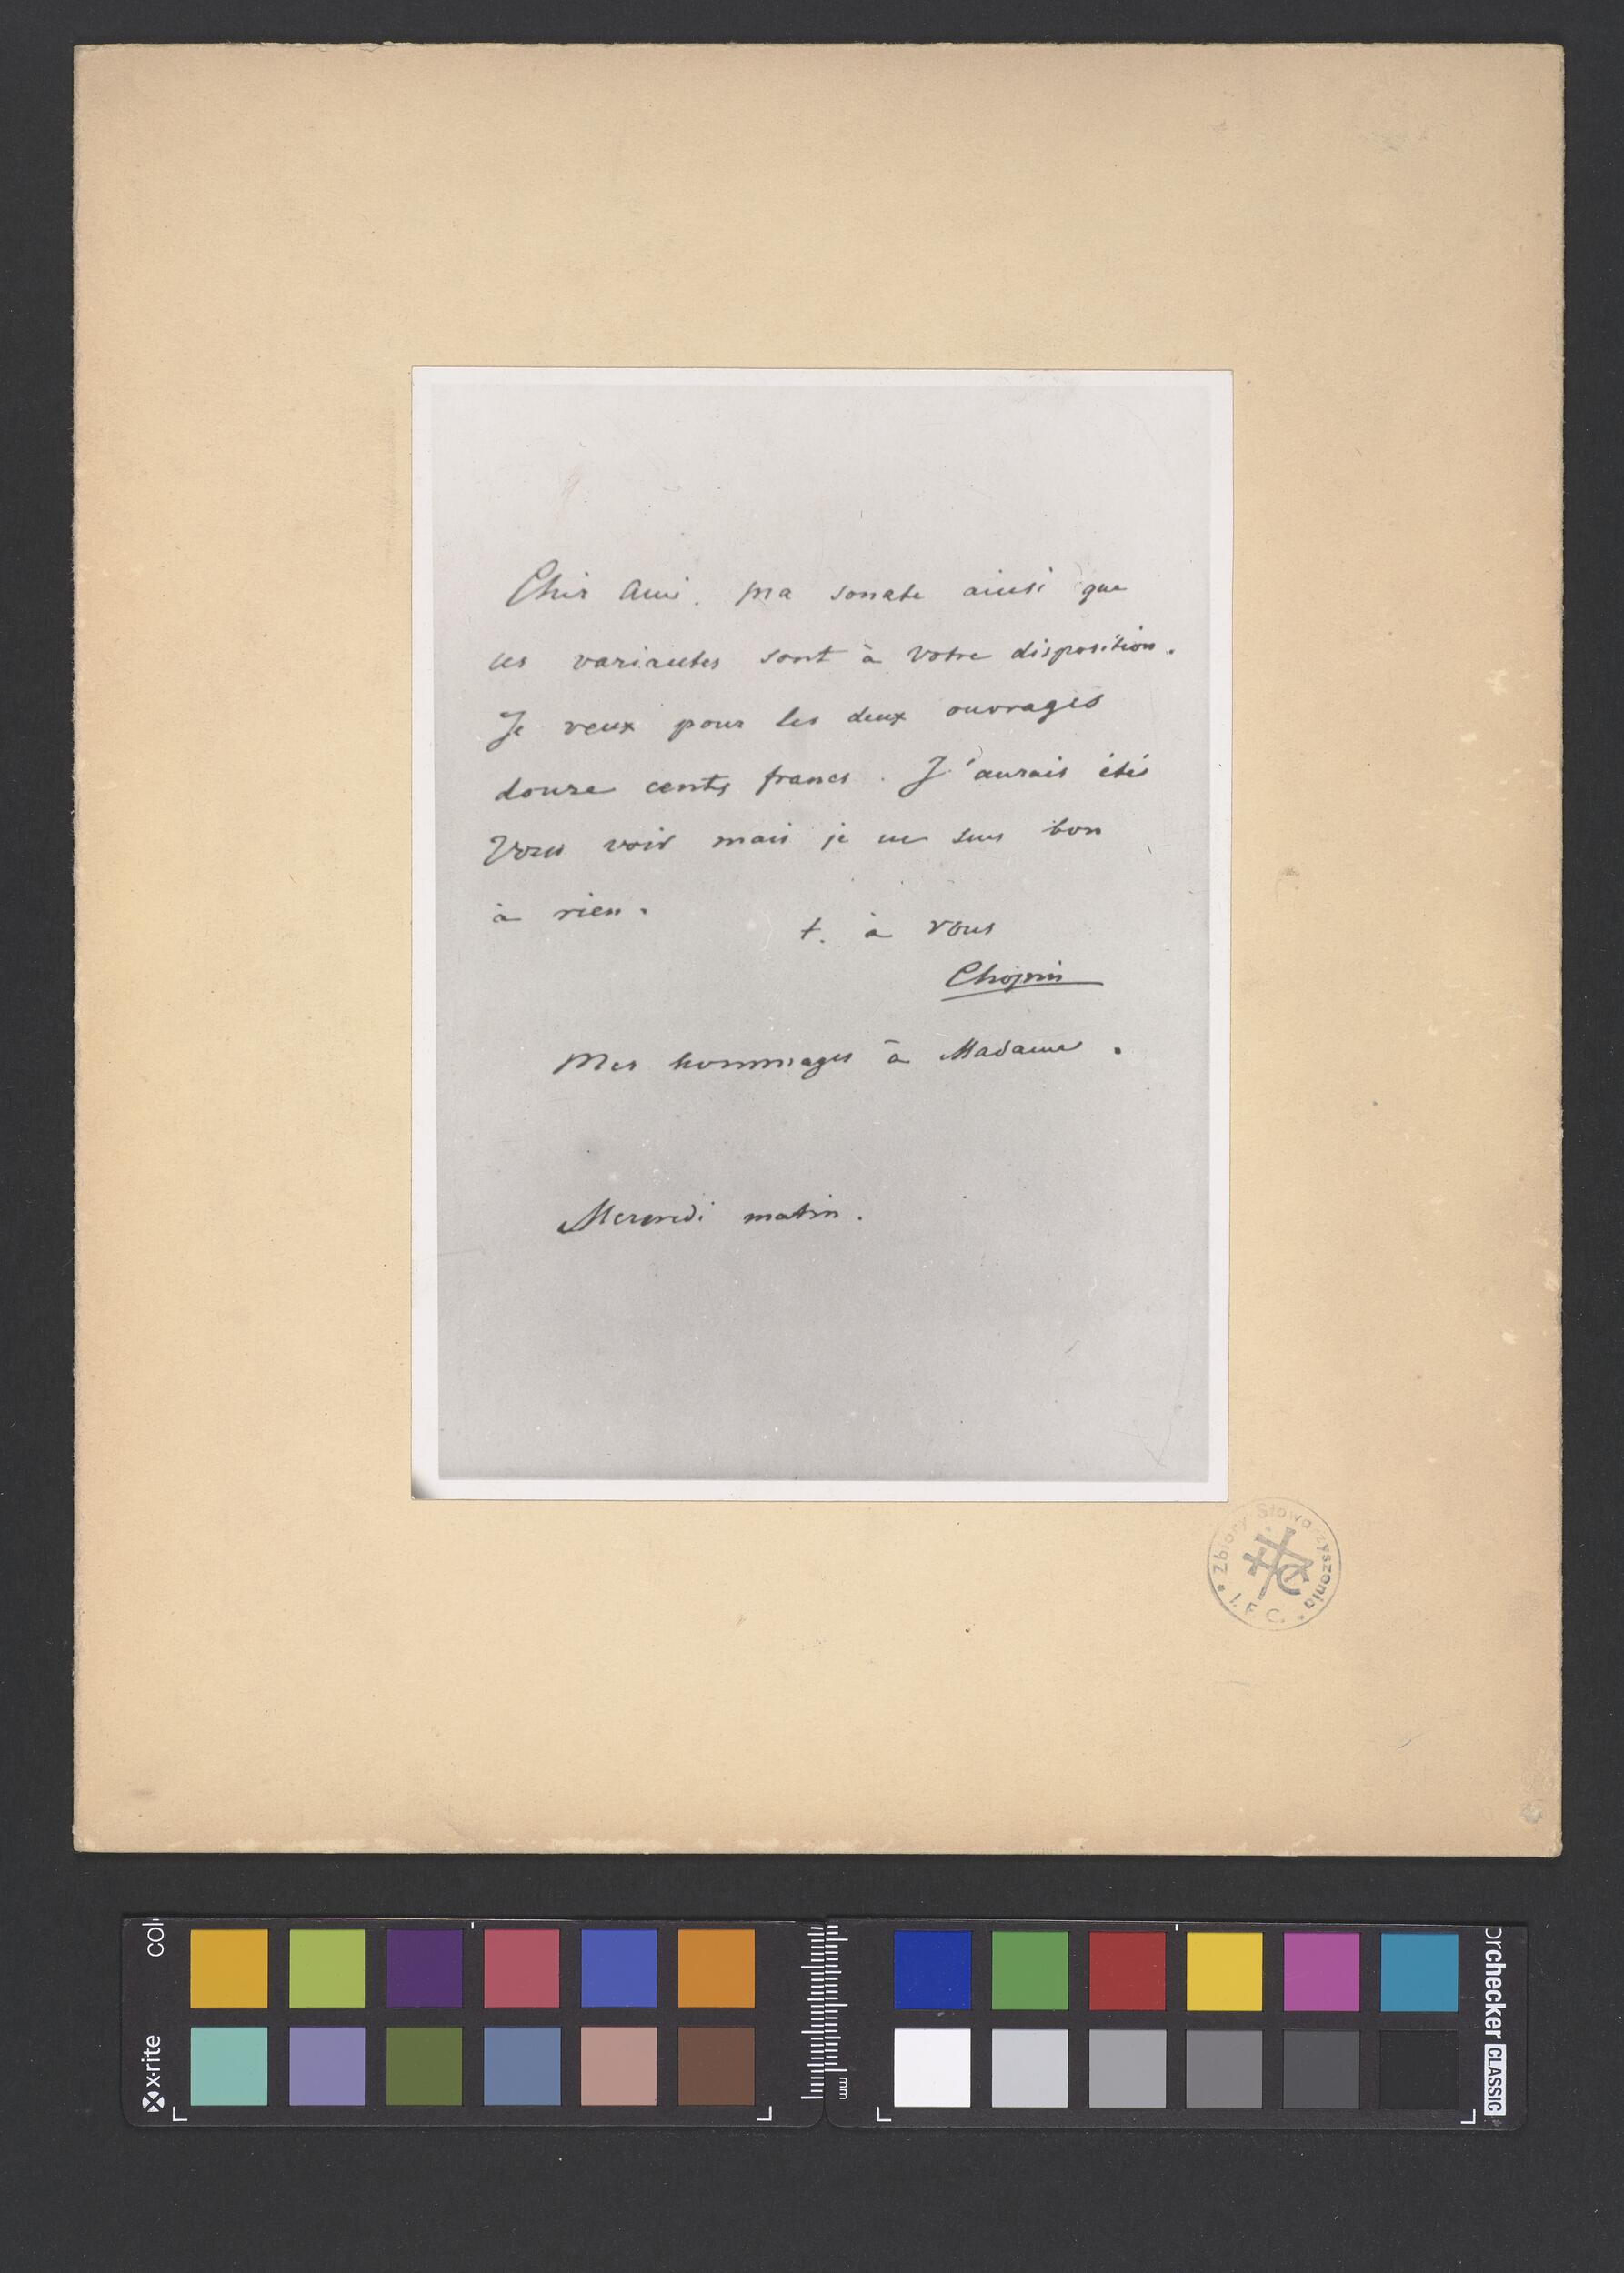 Cher Ami. Ma sonate ainsi que
les variantes sont à votre disposition.
Je veux pour les deux ouvrages
douze cents francs. J'aurais été
Vous voir mais je ne suis bon
à rien.
t. à vous
Chopin
Mes hommages à Madame.
Mercredi matin.
Zbiory Stowarzyszenia
I. F. C.
x·rite
mm
colorchecker CLASSIC